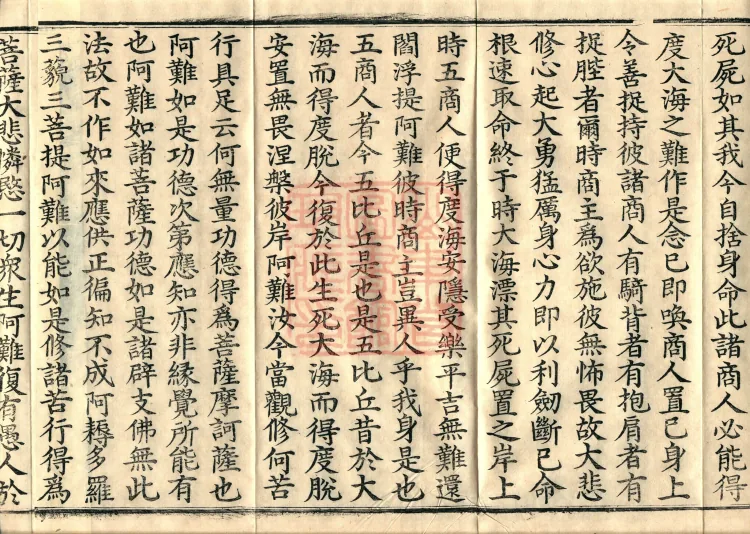 死屍如其我今自捨身命此諸商人必能得
度大海之難作是念已即喚商人置已身上
令善捉持彼諸商人有騎背者有抱肩者有
捉髀者爾時商主為欲施彼無怖畏故大悲
修心起大勇猛厲身心力即以利劒斷已命
根速取命終于時大海漂其死屍置之岸上
時五商人便得度海安隱受樂平吉無難還
閻浮提阿難彼時商主豈異人乎我身是也
五商人者今五比丘是也是五比丘昔於大
海而得度脫今復於此生死大海而得度脫
安置無畏涅槃彼岸阿難汝今當觀修何苦
行具足云何無量功德得為菩薩摩訶薩也
阿難如是功德次第應知亦非緣覺所能有
也阿難如諸菩薩功德如是諸辟支佛無此
法故不作如來應供正徧知不成阿耨多羅
三藐三菩提阿難以能如是修諸苦行得為
菩薩大悲憐愍一切衆生阿難復有愚人於